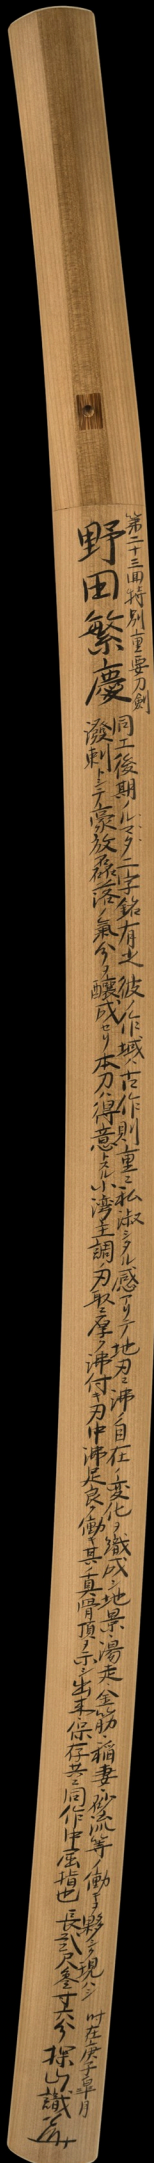 第二十三回特別重要刀剣
野田繁慶
同工後期ノルマタ二字銘有之彼ノ作域ハ古作則重ニ私淑シタル感アリテ地刃ニ沸自在ノ変化ヲ織成シ地景・湯走・金筋・稲妻・砂流等ノ働キ夥シク現ハシ
溌剌トシテ豪放磊落ノ氣分ヲ醸成セリ本刀ハ得意トスル小湾主調ノ刃取ニ厚ク沸付キ刃中沸足良ク働キ其ノ真骨頂ヲ示シ出来・保存共ニ同作中屈指也
長弐尺参寸六分
時在庚子皐月
探山識